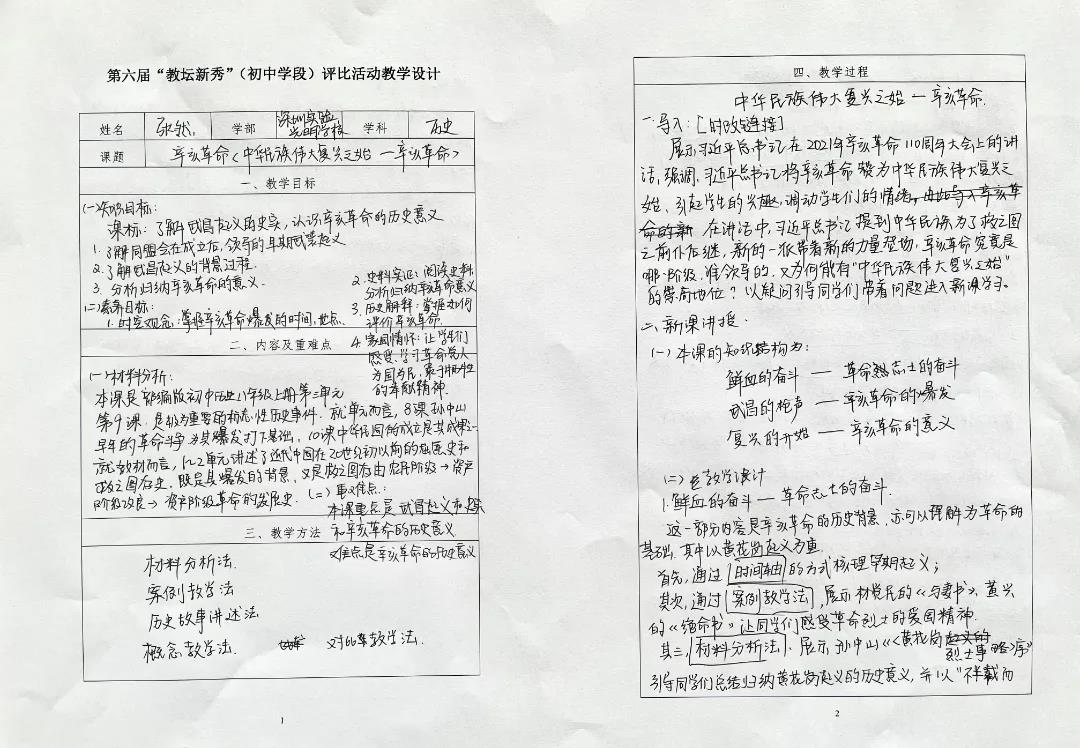 第六届“教坛新秀”（初中学段）评比活动教学设计
姓名
学部 深圳实验
光明学校
学科 历史
课题 辛亥革命<中华民族伟大复兴之始—辛亥革命>
一、教学目标
(一)知识目标:
课标:了解武昌起义的史实,认识辛亥革命的历史意义
1.了解同盟会在成立后,领导的早期武装起义
2.了解武昌起义的背景过程.
3.分析归纳辛亥革命的意义.
(二)素养目标:
1.时空观念:掌握辛亥革命爆发的时间、地点、
2.史料实证:阅读史料
分析归纳辛亥革命意义
3.历史解释:掌握如何
评价辛亥革命.
4.家国情怀:让学生们
感受、学习革命党人
为国为民,勇于牺牲
的奉献精神.
二、内容及重难点
(一)材料分析:
本课是部编版初中历史八年级上册第三单元
第9课,是极为重要的标志性历史事件.就单元而言,8课孙中山
早年的革命斗争为其爆发打下基础,10课中华民国的成立是其成果之一
就教材而言,1、2单元讲述了近代中国在20世纪初以前的屈辱史和
救亡图存史,既是其爆发的背景,又是救亡图存由农民阶级→资产
阶级改良→资产阶级革命的发展史.
(二)重难点:
本课重点是武昌起义史实
和辛亥革命的历史意义
难点是辛亥革命的历史意义
三、教学方法
材料分析法.
案例教学法
历史故事讲述法
概念教学法. 对比教学法.
1
四、教学过程
中华民族伟大复兴之始—辛亥革命.
一.导入:[时政链接]
展示习近平总书记在2021年辛亥革命110周年大会上的讲
话,强调,习近平总书记将辛亥革命 为中华民族伟大复兴之
始、引起学生的兴趣,调动学生们的情绪,由此导入辛亥革
命的新 在讲话中,习近平总书记提到中华民族为了救亡图
之前仆后继,新的一派带着新的力量登场,辛亥革命究竟是
哪一阶级、谁领导的.又为何能有“中华民族伟大复兴之始”
的崇高地位?以疑问引导同学们带着问题进入新课学习.
二、新课讲授.
(一)本课的知识结构为:
鲜血的奋斗——革命志士的奋斗
武昌的枪声——辛亥革命的爆发
复兴的开始——辛亥革命的意义
(二)教学设计
1.鲜血的奋斗—革命志士的奋斗.
这一部分内容是辛亥革命的历史背景,亦可以理解为革命的
基础,其中以黄花岗起义为重.
首先,通过[时间轴]的方式梳理早期起义;
其次,通过[案例教学法],展示林觉民的《与妻书》、黄兴
的《绝命书》让同学们感受革命烈士的爱国精神.
其三,[材料分析法],展示孙中山《<黄花岗起义的
烈士事略>序》
引导同学们总结归纳黄花岗起义的历史意义,并以“不半载而
2